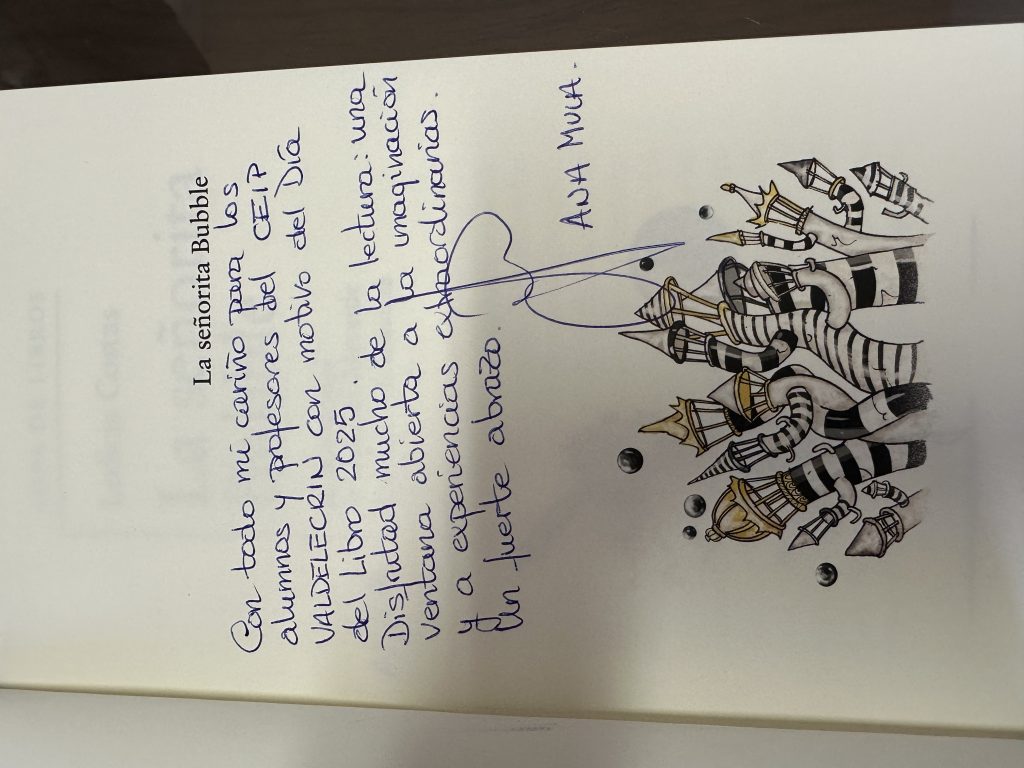 La señorita Bubble
Con todo mi cariño para los
alumnos y profesores del CEIP
VALDELECRIN con motivo del Día
del Libro 2025
Disfrutad mucho de la lectura: una
ventana abierta a la imaginación
y a experiencias extraordinarias.
Un fuerte abrazo.
ANA MULA.